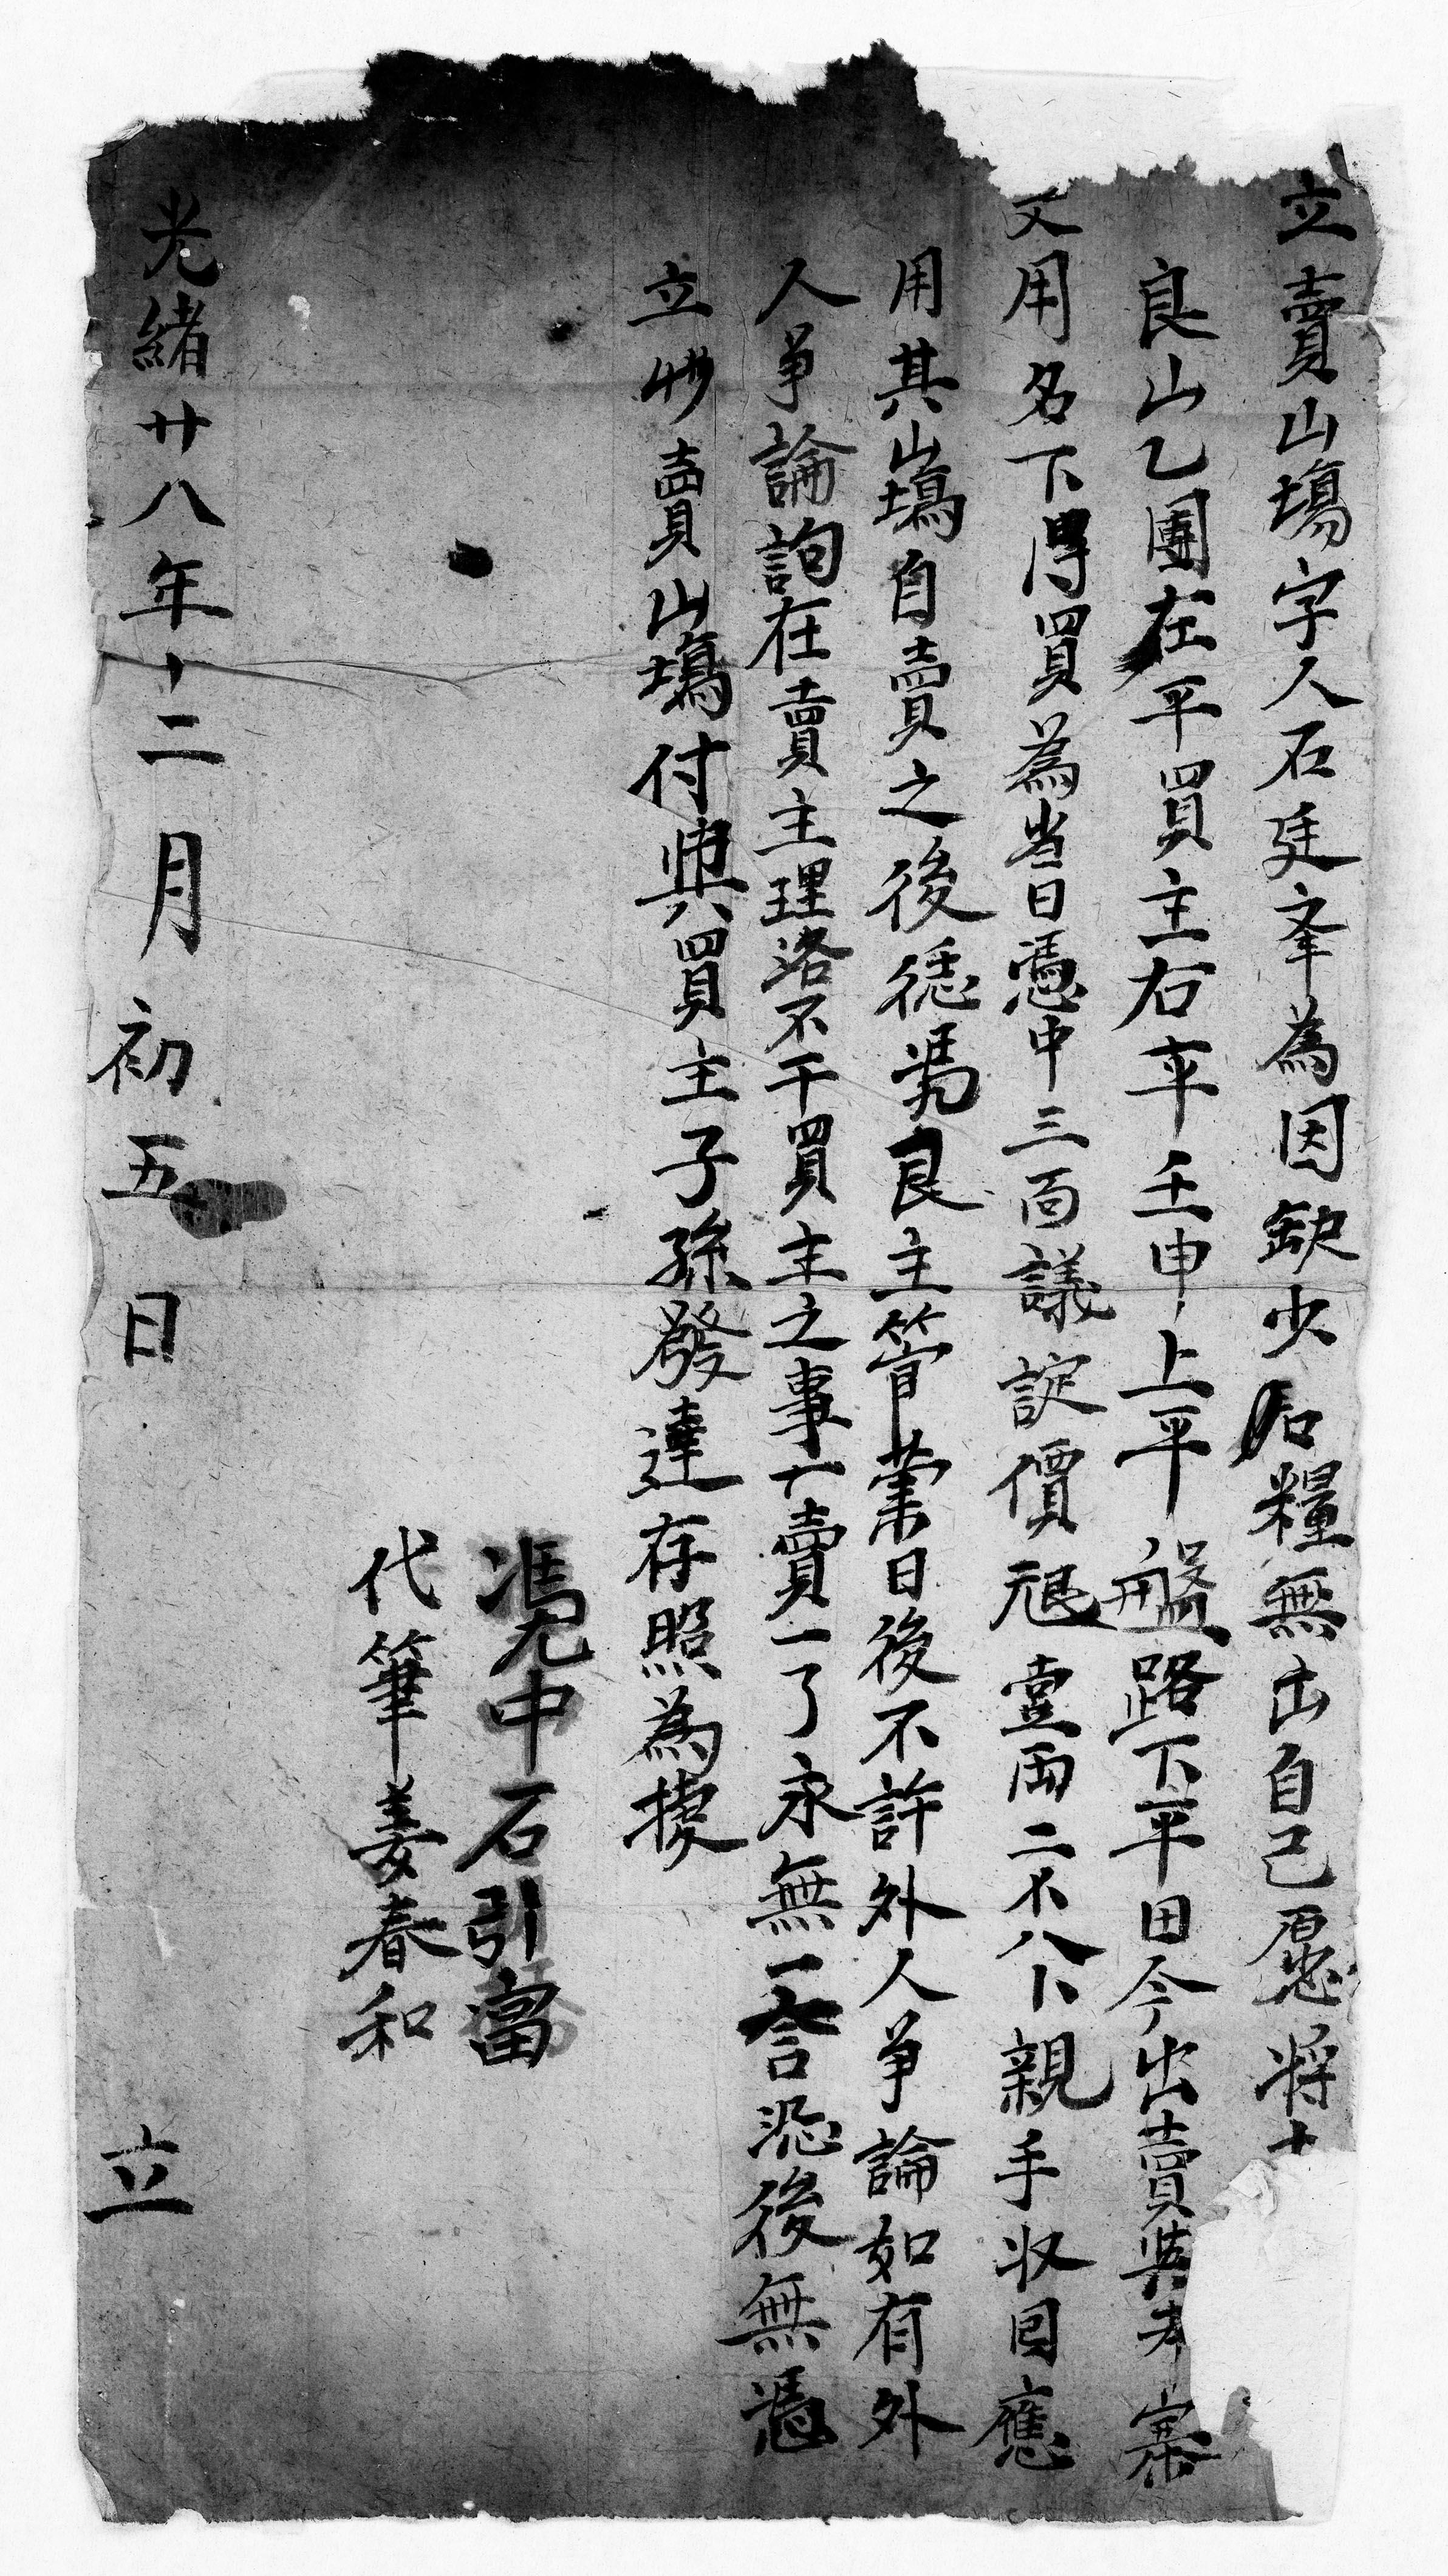 立賣山塲字人石廷峯為因缺少口糧無出自己愿將
良山乙團在平買主右平壬申上平盤路下平田今出賣與本寨
文用名下得買為當日憑中三面議定價艮壹両二不八卜親手收囬應
用其山塲自賣之後任憑良主管業日後不許外人爭論如有外
人爭論詞在賣主理洛不干買主之事一賣一了永無言恐後無憑
立此賣山塲付與買主子孫發達存照為據
憑中石引富
代筆姜春和
光緒廿八年十二月初五日 立